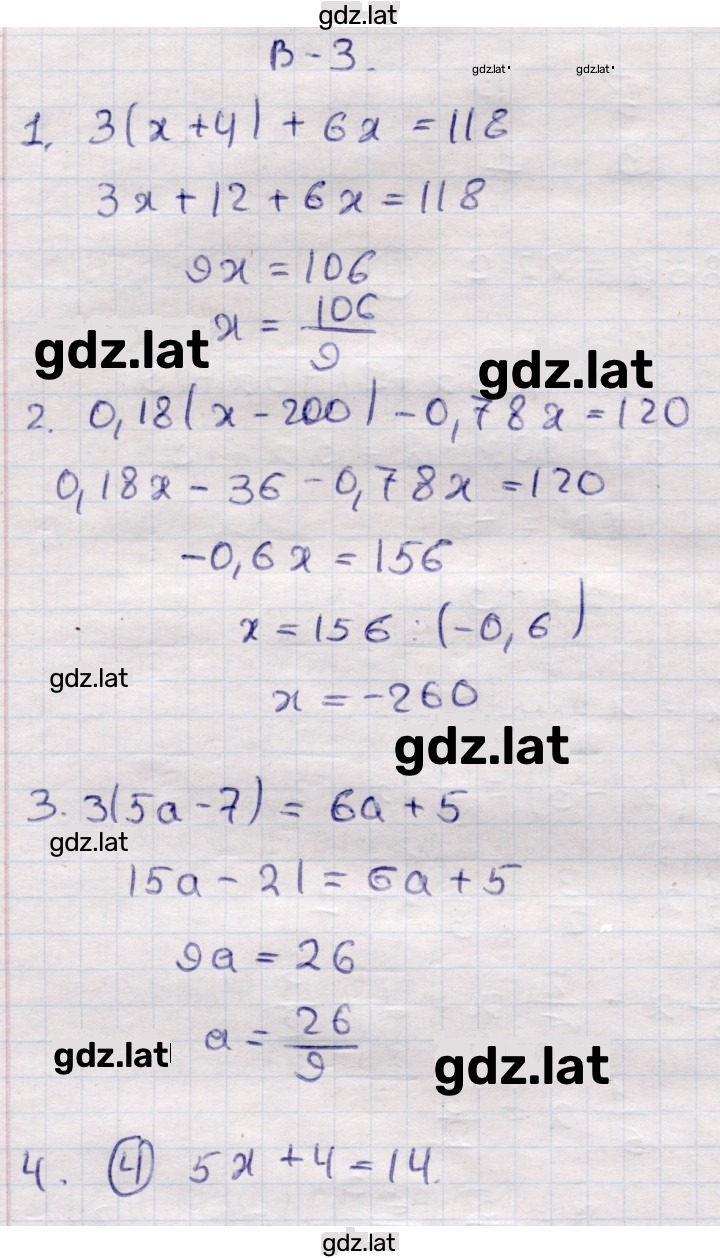 gdz.lat
В-3.
gdz.lat gdz.lat
1. 3(x+4)+6x=118
3x+12+6x=118
9x=106
x=106/9
gdz.lat gdz.lat
2. 0,18(x-200)-0,78x=120
0,18x-36-0,78x=120
-0,6x=156
x=156:(-0,6)
gdz.lat
x=-260
gdz.lat
3. 3(5a-7)=6a+5
gdz.lat
15a-21=6a+5
9a=26
a=26/9
gdz.lat gdz.lat
4. ④ 5x+4=14.
gdz.lat